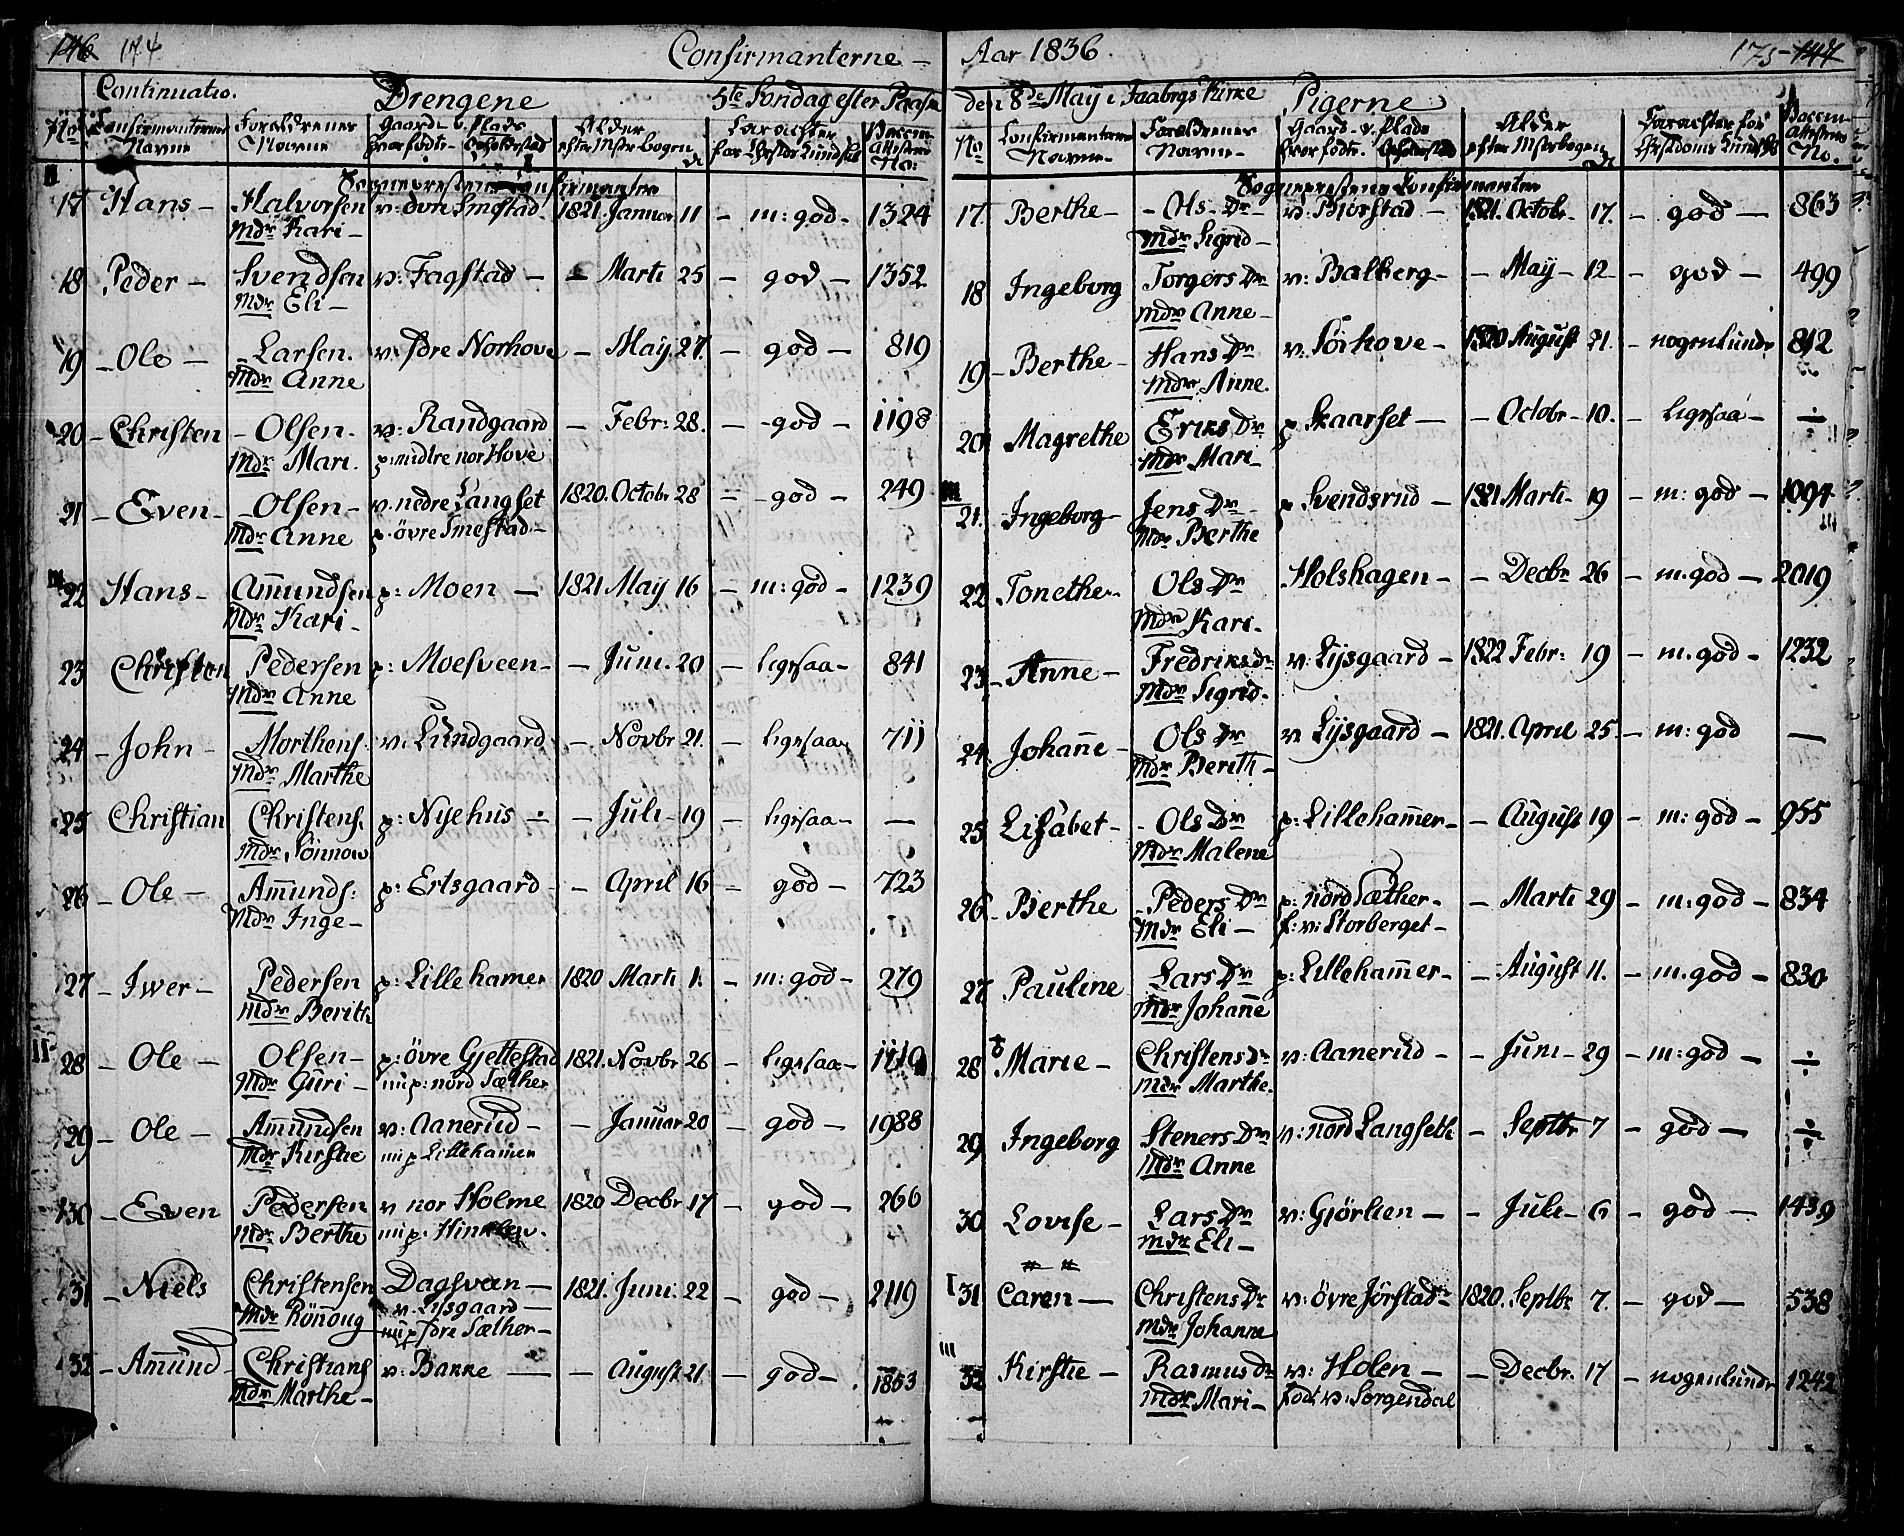 146 174 Confirmanterne –
Continuatio. Drengene 5te Søndag efter Paaske
No Confirmanternes Navne Forældrenes Navne Gaard v. Plads hvor fødte. Opholdsted Alder efter Mster bogen Carachter for Chrstds Kundsk: Vaccin: Attestens No:
Sognepræstens Confirmanter
17 Hans – Halvorsen v: övre Smestad 1821 Januar 11 – m: god – 1324
Mdr Kari –
18 Peder – Svendsen v: Fagstad – – Marti 25 – god – 1352
Mdr Eli –
19 – Ole – – Larsen. v: sdre Norhove – May. 27. – god – 819
Mdr Anne
20 – Christen – Olsen. v: Randgaard – Febr: 28. – god – 1198
Mdr Mari. p: midtre nor Hove
21 – Even – – Olsen – v. nedre Langset 1820. Octobr 28 – god – 249
Mdr Anne p: övre Smestad –
22 Hans – Amundsen p: Moen – 1821 May 16 – m: god – 1239
Mdr Kari –
23 Christen Pedersen p: Moesveen – – Juni. 20 – ligesaa – 841
Mdr Anne
24 – John – Morthens: v: Lundgaard – Novbr 21. – ligesaa 711
Mdr Marthe
25 Christian Christens. p: Nyehus – – Juli – 19 – ligesaa – —
Mdr Sönnow
26 – Ole – Amunds: p: Ertsgaard – – April 16 – god – 723
Mdr Inge –
27 – Iwer – Pedersen p: Lillehamer 1820 Marti 1. – m: god – 279
Mdr Berith
28 – Ole – Olsen – p: övre Gjettestad 1821. Novbr 26 – ligesaa – 1119
Mdr Guri – nu p: nord Sæther
29 – Ole – Amundsen v: Aanerud – – Januar 20 – god – 1988
Mdr Kirstie nu p Lillehamer
30 – Even Pedersen v nor Holme 1820 Decbr 17 – god – 266
Mdr Berthe nu p:
31 – Niels Christensen Dagsvæn – 1821. Juni. 22 – god – 2119
Mdr Rönnoug v: Lysgaard –
nu p sdre Sæther –
32 – Amund Christians v: Bakke — – August 21. – god – 1853
Mdr Marthe –
Aar 1836. 175 – 147
den 8de May i Faabergs Kirke Pigerne
No Confirmanternes Navne – Forældrenes Navne – Gaard – v. Plads hvor fødte. Opholdsted Alder efter Msterbogen Carachter for Chrstdoms Kundsk: Vaccin: Attestens No.
Sognepræstens Confirmanter
17. Berthe – – Ols – Dr – v: Biörstad – 1821. Octobr – 17. – god – 863
Mdr Sigrid –
18 Ingeborg Torgers Dr v: Balberg – – May – 12 – god – 499
Mdr Anne –
19 – Berthe – Hans Dr v: Sörhove – 1820 August 21. – nogenlunde 812
Mdr Anne.
20. Magrethe Eriks Dr p Skaarset — – Octobr – 10. – ligesaa ÷
Mdr Mari –
21. Ingeborg – Jens Dr – p Svendsrud – 1821 Marti – 19 – m: god – 1094
Mdr Berthe
22 Tonethe – Ols Dr Holshagen – – Decbr 26 – m. god – 2019
Mdr Kari –
23 – Anne – Fredriks Dr v: Lysgaard – 1822 Febr: 19 – m. god – 1232
Mdr Sigrid.
24 – Johane – Ols Dr v Lysgaard – 1821. April 25. – m: god —
Mdr Berith –
25 Lisabet – – Ols Dr p: Lillehamer – – August 19 – m: god – 955
Mdr Malene
26 – Berthe – Peders Dr – p: nord Sæther – – Marti 29 – m: god – 834
Mdr Eli – f: v: Storberget –
27. Pauline Lars Dr p: Lillehamer – – August 11. – m. god – 830
Mdr Johane
28 Marie – Christens Dr v: Aanerud – – Juni – 29 – m: god – ÷
Mdr Marthe.
29 Ingeborg Steners Dr v: nord Langseth – Septbr 7 – god – ÷
Mdr Anne
30 Lovise – Lars Dr v: Gjörlien – – Juli – 6 – god – 1439
Mdr Eli –
31 Caren – Christens Dr v: övre Jörstad – 1820. Septbr 7. – god – 538
Mdr Johanne
32 Kirstie – Rasmus Dr v: Holen – – Decbr. 17 – nogenlunde 1242
Mdr Mari – Født v: Sorgendal